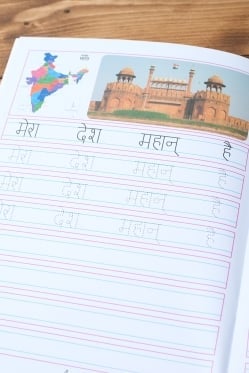 मेरा देश महान् है
मेरा देश महान् है
मेरा देश महान् है
मेरा देश महान् है